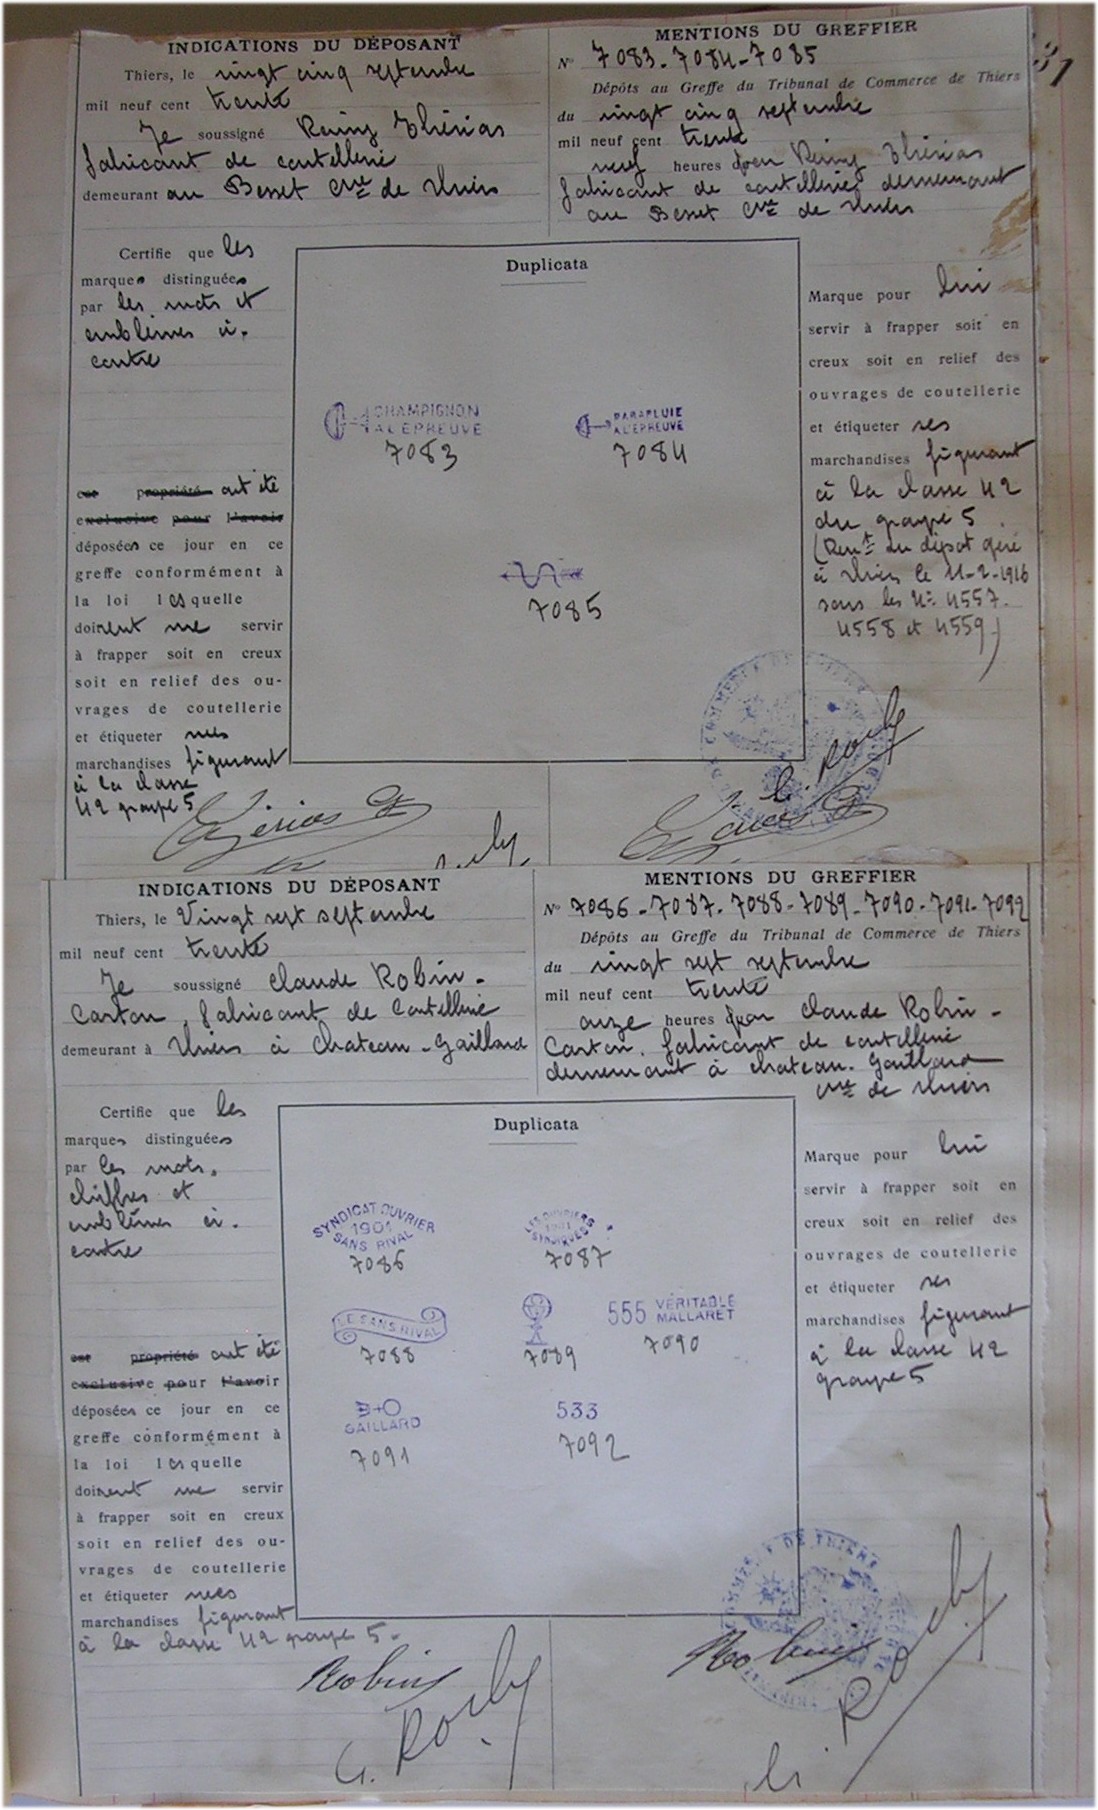 31
INDICATIONS DU DÉPOSANT
Thiers, le vingt cinq septembre
mil neuf cent trente
Je soussigné Rémy Thérias
fabricant de coutellerie
demeurant au Besset Cne de Thiers
Certifie que les
marques distinguées
par les mots et
emblèmes ci-
contre
est propriété ont été
exclusive pour l'avoir
déposées ce jour en ce
greffe conformément à
la loi lesquelle
doivent me servir
à frapper soit en creux
soit en relief des ou-
vrages de coutellerie
et étiqueter mes
marchandises figurant
à la classe
42 groupe 5
MENTIONS DU GREFFIER
N° 7083-7084-7085
Dépôts au Greffe du Tribunal de Commerce de Thiers
du vingt cinq septembre
mil neuf cent trente
neuf heures par Rémy Thérias
fabricant de coutellerie demeurant
au Besset Cne de Thiers
Duplicata
CHAMPIGNON
A L'ÉPREUVE
7083
PARAPLUIE
A L'ÉPREUVE
7084
7085
Marque pour lui
servir à frapper soit en
creux soit en relief des
ouvrages de coutellerie
et étiqueter ses
marchandises figurant
à la classe 42
du groupe 5
(Renvt du dépot
à Thiers le 11-2-1916
sous les Nos 4557-
4558 et 4559)
Thérias
G. Rouly
Thérias
INDICATIONS DU DÉPOSANT
Thiers, le Vingt sept septembre
mil neuf cent trente
Je soussigné Claude Robin-
Carton, fabricant de Coutellerie
demeurant à Thiers à Chateau-Gaillard
Certifie que les
marques distinguées
par les mots,
chiffres et
emblêmes ci-
contre
est propriété ont été
exclusive pour l'avoir
déposées ce jour en ce
greffe conformément à
la loi lesquelle
doivent me servir
à frapper soit en creux
soit en relief des ou-
vrages de coutellerie
et étiqueter mes
marchandises figurant
à la classe 42 groupe 5.
MENTIONS DU GREFFIER
N° 7086-7087-7088-7089-7090-7091-7092
Dépôts au Greffe du Tribunal de Commerce de Thiers
du vingt sept septembre
mil neuf cent trente
onze heures par Claude Robin-
Carton, fabricant de coutellerie
demeurant à chateau-Gaillard
Cne de Thiers
Duplicata
SYNDICAT OUVRIER
1901
SANS RIVAL
7086
LES OUVRIERS
1901
SYNDIQUÉS
7087
LE SANS RIVAL
7088
7089
555 VÉRITABLE
MALLARET
7090
GAILLARD
7091
533
7092
Marque pour lui
servir à frapper soit en
creux soit en relief des
ouvrages de coutellerie
et étiqueter ses
marchandises figurant
à la classe 42
groupe 5
Robin
Robin